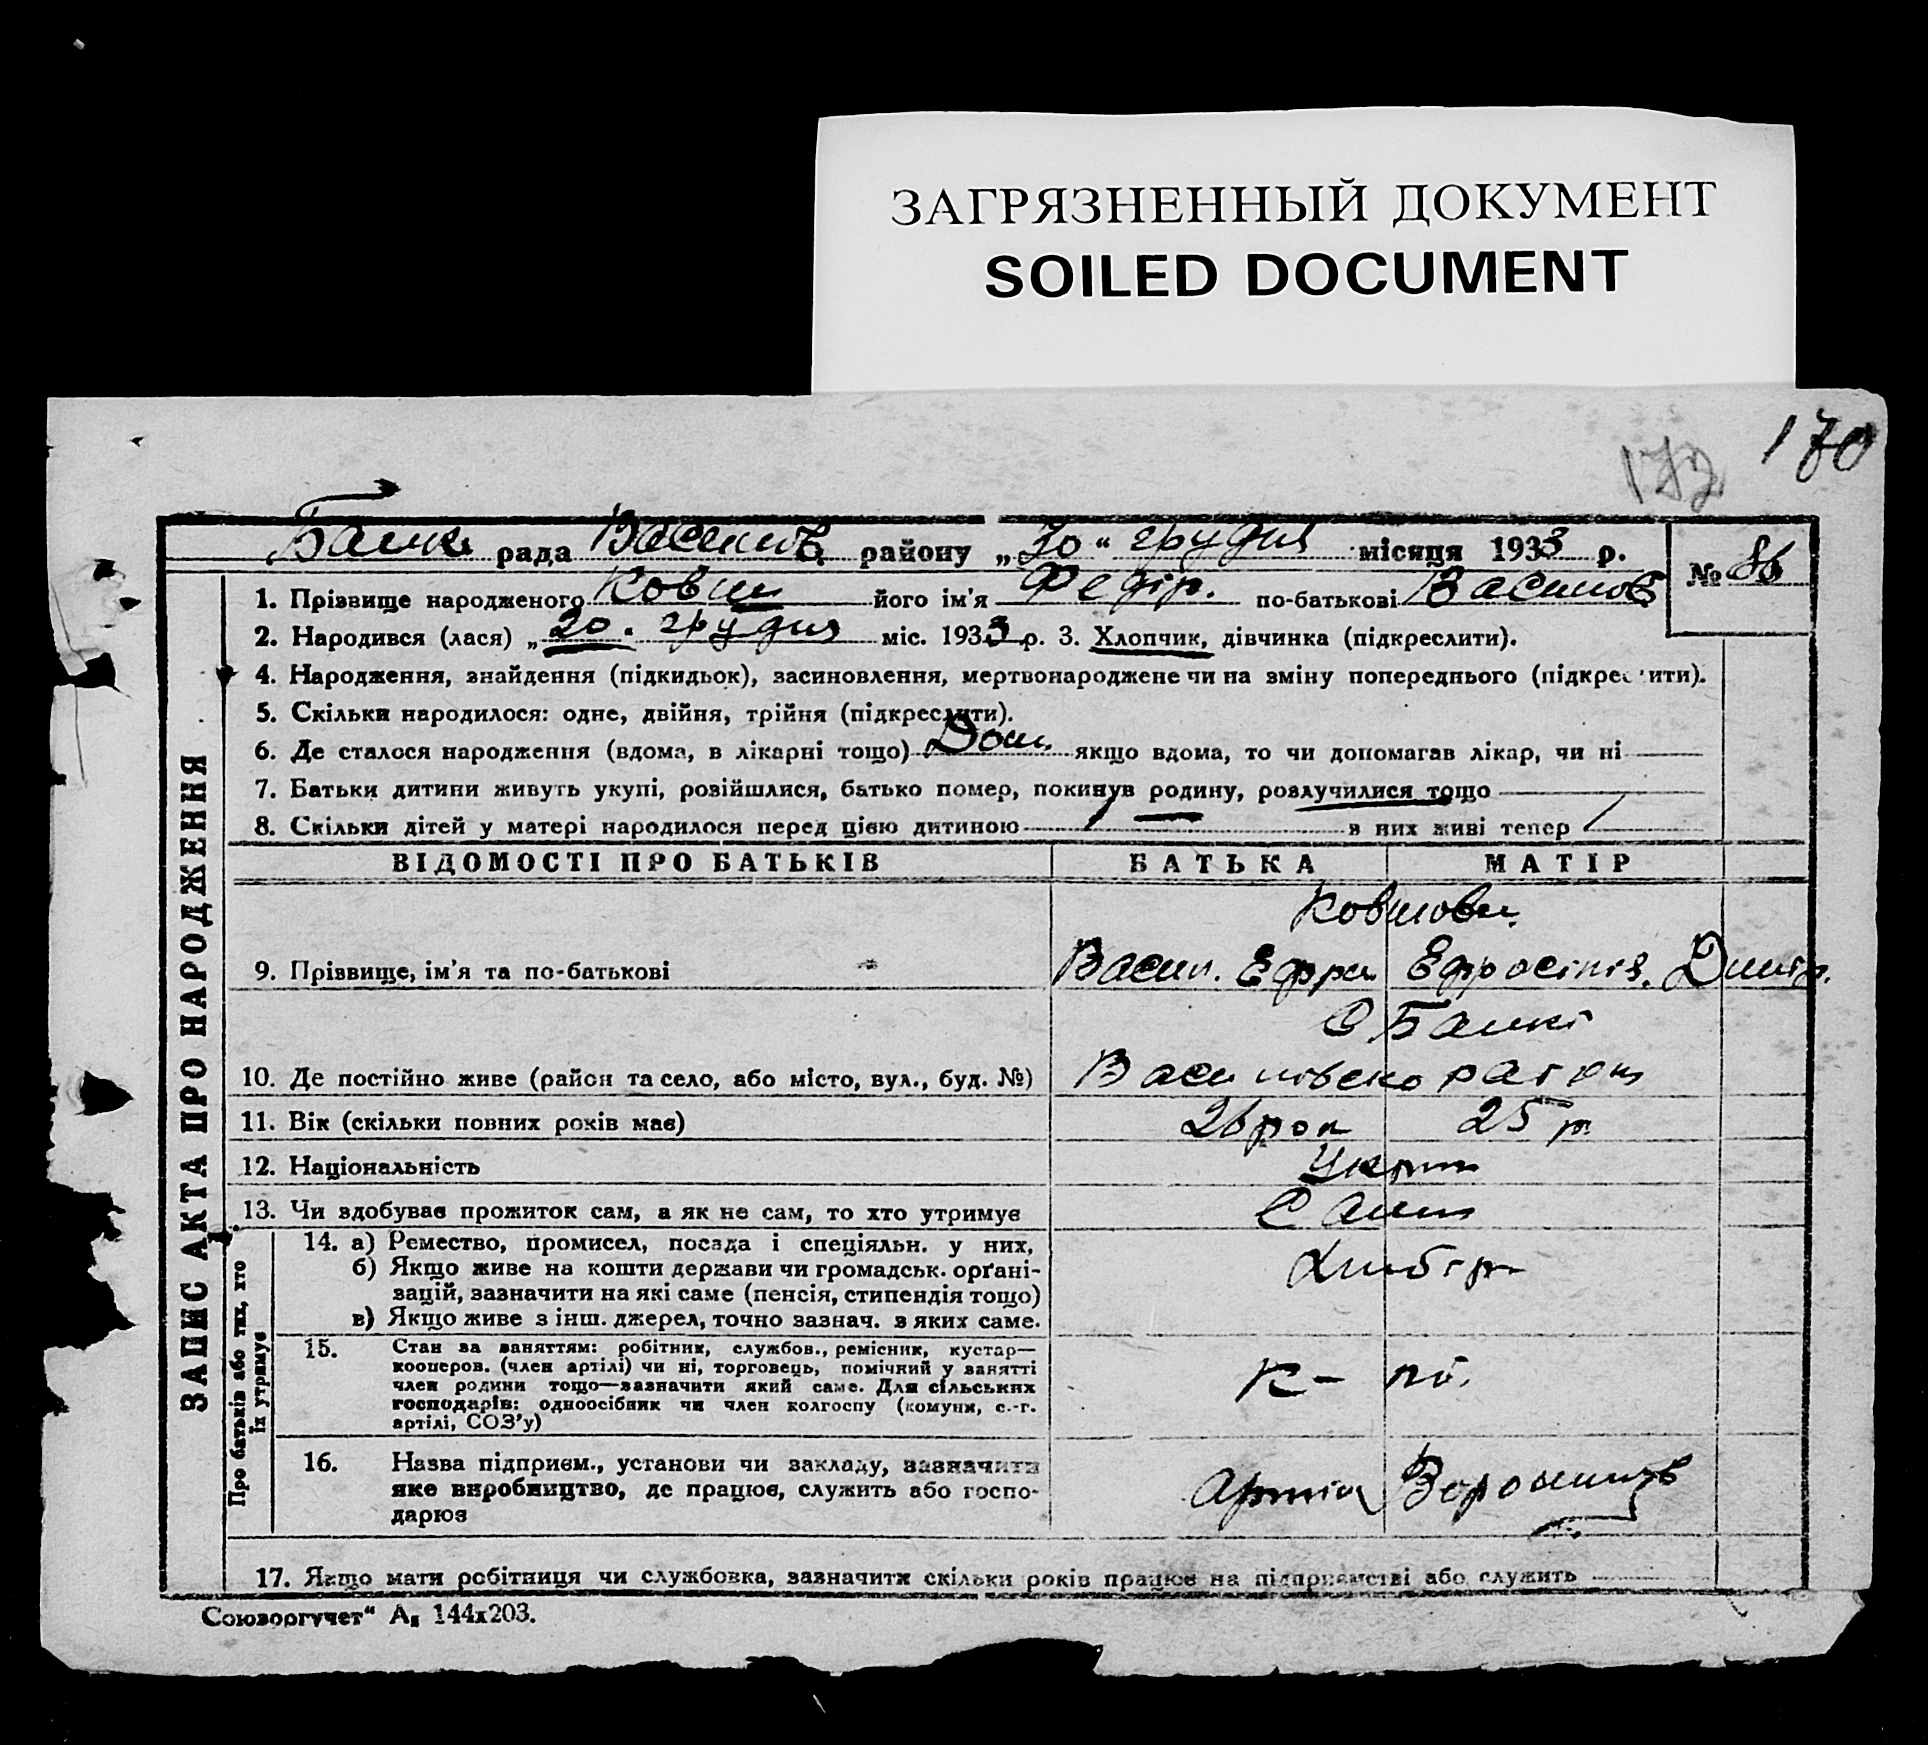 ЗАГРЯЗНЕННЫЙ ДОКУМЕНТ
SOILED DOCUMENT
170
172
рада району „30“ грудня місяця 1933 р.
№ 86
1. Прізвище народженого Ковш його ім'я Федір. по-батькові
2. Народився (лася) „20. грудня міс. 1933 р. 3. Хлопчик, дівчинка (підкреслити).
4. Народження, знайдення (підкидьок), засиновлення, мертвонароджене чи на зміну попереднього (підкреслити).
5. Скільки народилося: одне, двійня, трійня (підкреслити).
6. Де сталося народження (вдома, в лікарні тощо) Дом якщо вдома, то чи допомагав лікар, чи ні
7. Батьки дитини живуть укупі, розійшлися, батько помер, покинув родину, розлучилися тощо
8. Скільки дітей у матері народилося перед цією дитиною 1 з них живі тепер 1
ЗАПИС АКТА ПРО НАРОДЖЕННЯ
ВІДОМОСТІ ПРО БАТЬКІВ БАТЬКА МАТІР
Ковшови
9. Прізвище, ім'я та по-батькові Васил. Ефре Ефросінія. Дмитр.
10. Де постійно живе (район та село, або місто, вул., буд. №)
11. Вік (скільки повних років має) 26 рок 25 р
12. Національність Укр
13. Чи здобуває прожиток сам, а як не сам, то хто утримує Сами
Про батьків або тих, хто
їх утримує
14. а) Ремество, промисел, посада і спеціяльн. у них, Хлибор
б) Якщо живе на кошти держави чи громадськ. органі-
зацій, зазначити на які саме (пенсія, стипендія тощо)
в) Якщо живе з інш. джерел, точно зазнач. з яких саме.
15. Стан за заняттям: робітник, службов., ремісник, кустар—
кооперов. (член артілі) чи ні, торговець, помічний у занятті
член родини тощо—зазначити який саме. Для сільських
господарів: одноосібник чи член колгоспу (комуни, с.-г.
артілі, СОЗ'у)
16. Назва підприєм., установи чи закладу, зазначити
яке виробництво, де працює, служить або госпо-
дарює
Артіл Ворошилов
17. Якщо мати робітниця чи службовка, зазначити скільки років працює на підприємстві або служить
Союзоргучет“ А₅ 144х203.